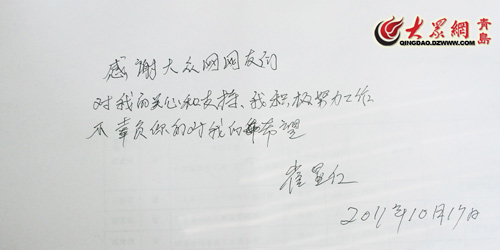 大眾網 青島
QINGDAO.DZWWW.COM
感谢大众网网友们
对我的关心和支持、我积极努力工作
不辜负你们对我的希望
崔宣仁
2011年10月17日